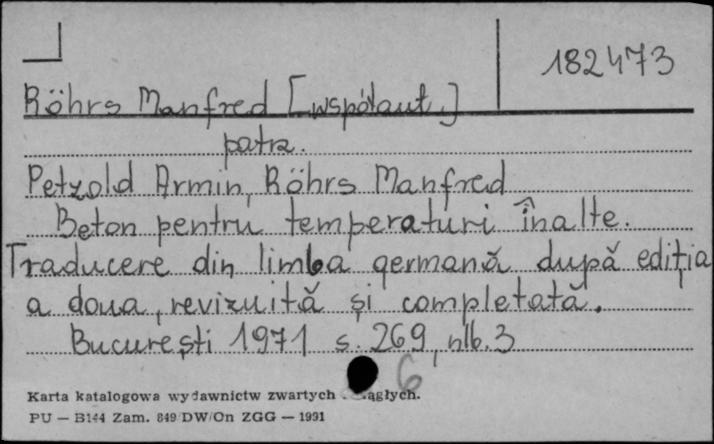 182473
Röhrs Manfred [współaut.]
patrz.
Petzold Armin, Röhrs Manfred
Beton pentru temperaturi înalte.
Traducere din limba germană după ediția
a doua, revizuită și completată.
București 1971 s. 269, nlb. 3
6
Karta katalogowa wydawnictw zwartych ągłych.
PU — B144 Zam. 849/DW/On ZGG — 1991